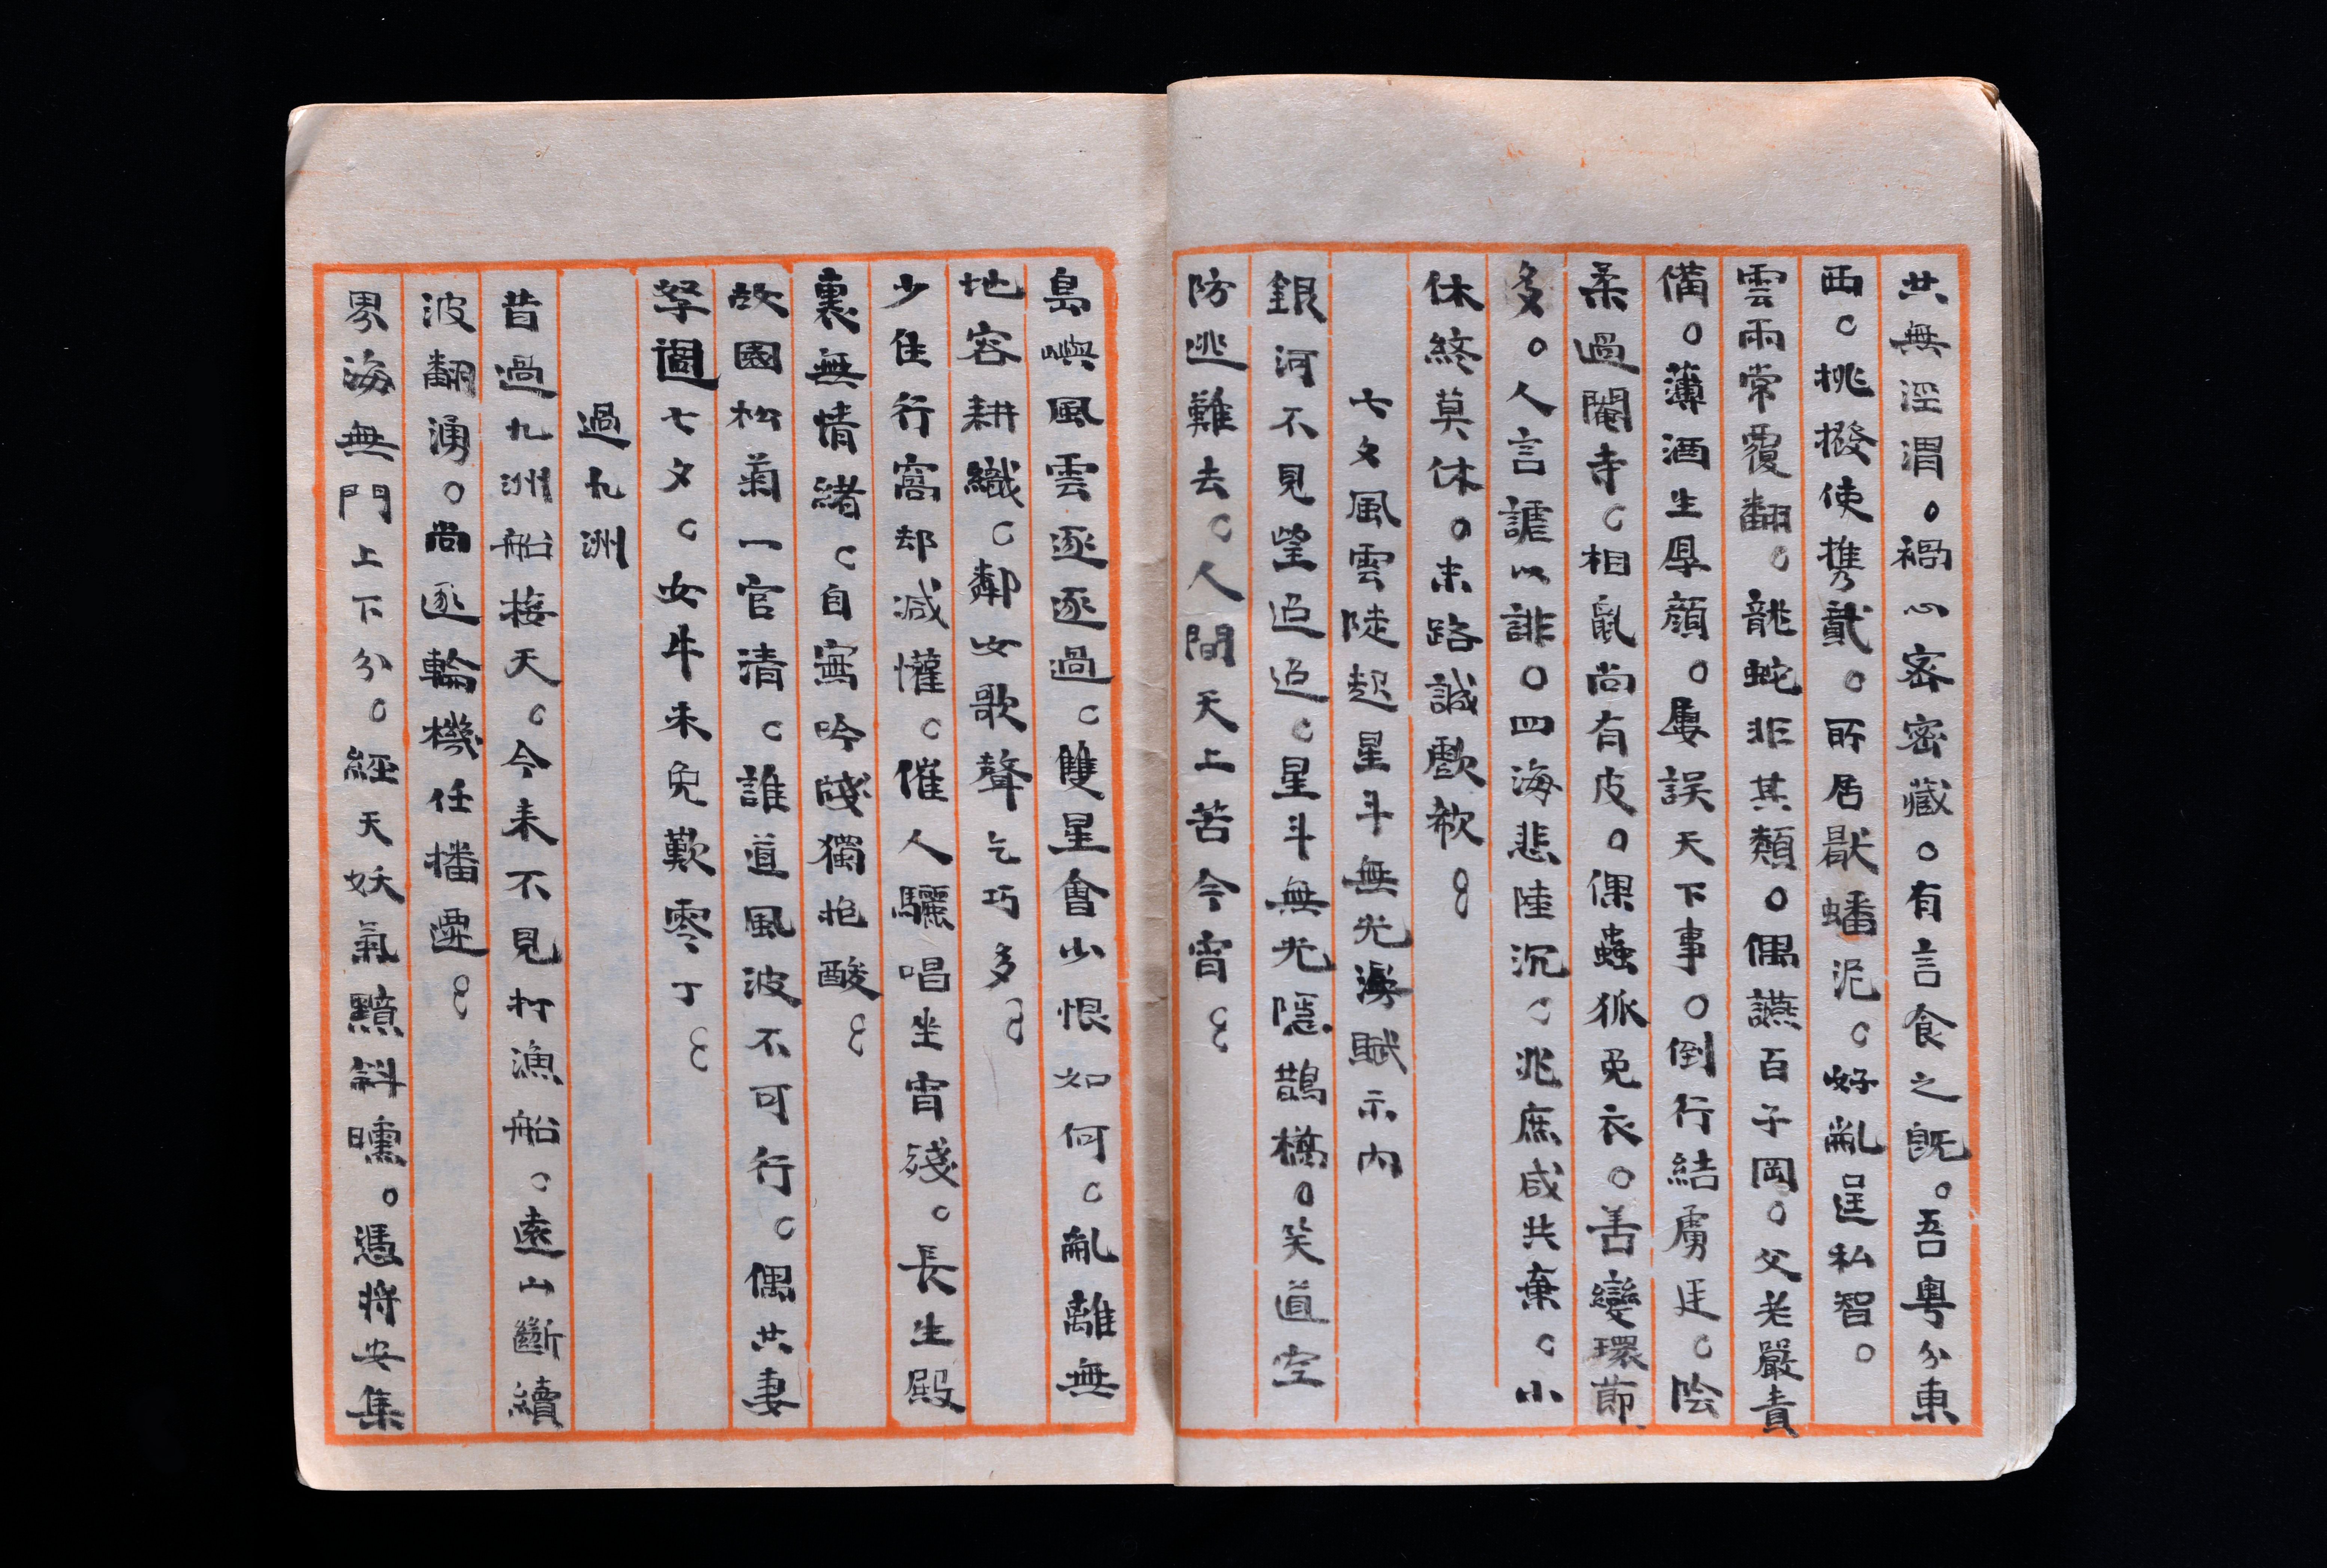 共無淫渭。禍心密密藏。有言食之既。吾粵分東
西。挑撥使攜貳。所居厭蟠泥。好亂逞私智。
雲雨常覆翻。龍蛇非其類。偶讌百子岡。父老嚴責
備。薄酒生厚顏。屢誤天下事。倒行結虜廷。陰
柔過閹寺。相鼠尚有皮。倮蟲狐兔衣。善變環節
多。人言謔以誹。四海悲陸沉。兆庶咸共棄。小
休終莫休。末路誠歔欷。
七夕風雲陡起星斗無光漫賦示內
銀河不見望迢迢。星斗無光隱鵲橋。笑道空
防逃難去。人間天上苦今宵。
島嶼風雲逐逐過。雙星會少恨如何。亂離無
地容耕織。鄰女歌聲乞巧多。
少住行窩却減懽。催人驪唱坐宵殘。長生殿
裏無情緒。自寫吟牋獨抱酸。
故國松菊一官清。誰道風波不可行。偶共妻
孥過七夕。女牛未免歎零丁。
過九洲
昔過九洲船接天。今來不見打漁船。遠山斷續
波翻湧。尚逐輪機任播遷。
界海無門上下分。經天妖氣黯斜曛。憑將安集